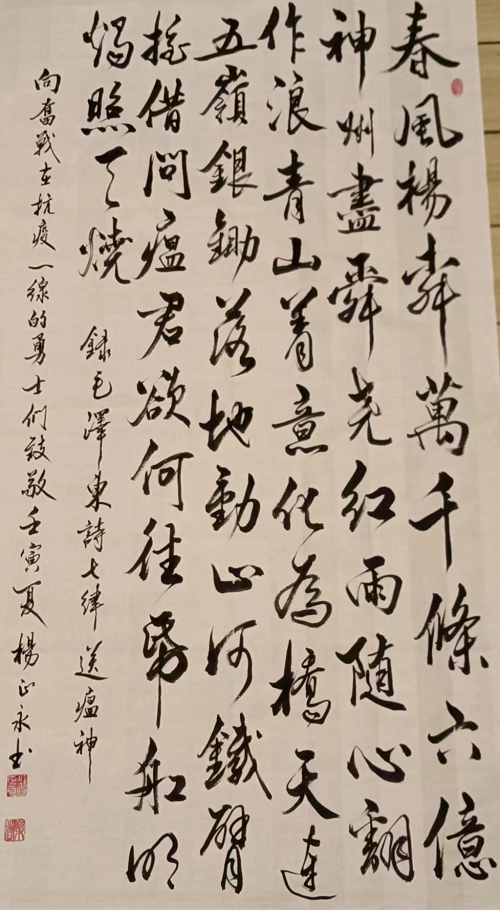 春風楊柳萬千條六億
神州盡舜尧红雨随心翻
作浪青山着意化為橋天连
五嶺銀鋤落地動山河鐵臂
摇借問瘟君欲何往帋船明
燭照天燒
録毛澤東詩七律 送瘟神
向奮戰在抗疫一線的勇士們致敬壬寅夏 楊正永书